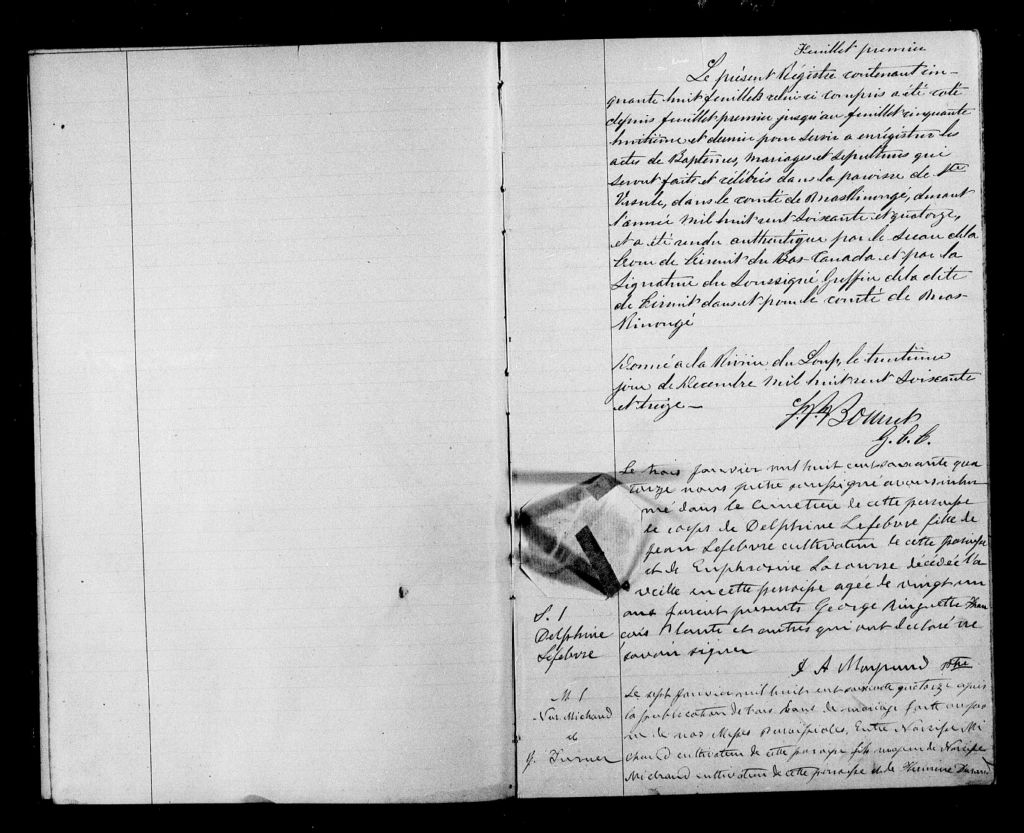 Feuillet premier
Le présent Régistre contenant cin-
quante huit feuillets celui ci compris a été coté
depuis feuillet premier jusqu'au feuillet cinquante
huitième et dernier pour servir a enrégistrer les
actes de Baptêmes, mariages et sepultures qui
seront faits et célébrés dans la paroisse de Ste
Ursule, dans le comté de Maskinongé, durant
l'année mil huit cent soixante et quatorze,
et a été rendu authentique par le sceau de la
Cour de Circuit du Bas-Canada et par la
Signature du Soussigné Greffier de la dite
de Circuit dans et pour le comté de Mas-
kinongé
Donné a la Rivière du Loup, le trentième
jour de Décembre mil huit cent soixante
et treize —
G. C. C.
Le trois janvier mil huit cent soixante qua
torze nous prêtre soussigné avons inhu
mé dans le cimetière de cette paroisse
le corps de Delphine Lefebvre fille de
Jean Lefebvre cultivateur de cette paroisse
et de Euphrosine décédée l'a
veille en cette paroisse agée de vingt un
ans furent presents George Ringuette Fran
cois Plante et autres qui ont declaré ne
savoir signer
S. 1
Delphine
Lefebvre
J A ptre
M 1
Nar Michaud
et
Le sept janvier mil huit cent soixante quatorze après
la publication de trois bans de mariage faite au pro
ne de nos Messes Paroissiales, Entre Narcisse Mi
chaud cultivateur de cette paroisse fils majeur de Narcisse
Michaud cultivateur de cette paroisse et de